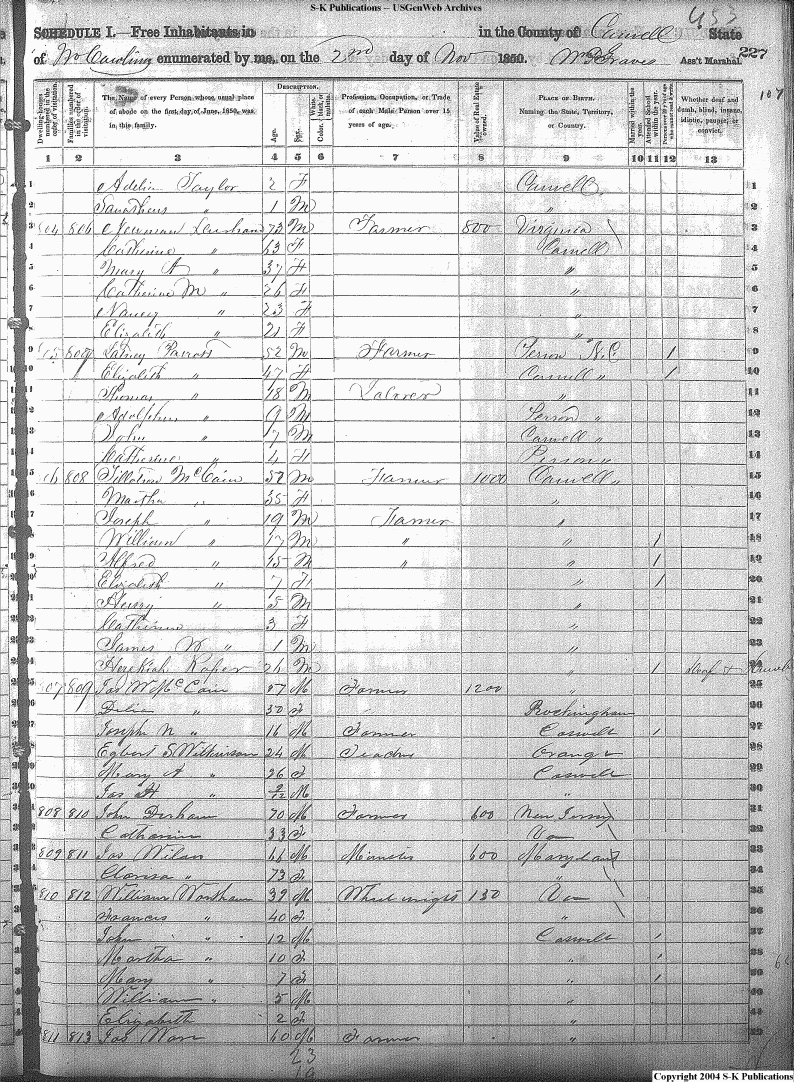 S-K Publications -- USGenWeb Archives
453
SCHEDULE I. — Free Inhabitants in in the County of Caswell State
of No Carolina enumerated by me, on the 2nd day of Nov 1850. Wm Graves Ass't Marshal. 227
107
Dwelling-houses numbered in the order of visitation. Families numbered in the order of visitation. The Name of every Person whose usual place of abode on the first day of June, 1850, was in this family. DESCRIPTION. Age. Sex. Color, White, black, or mulatto. Profession, Occupation, or Trade of each Male Person over 15 years of age. Value of Real Estate owned. PLACE OF BIRTH. Naming the State, Territory, or Country. Married within the year. Attended School within the year. Whether deaf and dumb, blind, insane, idiotic, pauper, or convict.
1 2 3 4 5 6 7 8 9 10 11 12 13
1 Adelia Taylor 2 F Caswell 1
2 " 1 M " 2
3 804 806 73 M Farmer 800 Virginia 3
4 Catherine " 63 F Caswell 4
5 Mary A " 37 F " 5
6 Catherine M " 26 F " 6
7 Nancy " 23 F " 7
8 Elizabeth " 21 F " 8
9 807 52 M Farmer Person N.C. 1 9
10 Elizabeth " 47 F Caswell " 1 10
11 Thomas " 18 M Laborer 11
12 Adolphus " 9 M Person " 12
13 John " 7 M Caswell " 13
14 Catherine " 4 F Person " 14
15 808 Tillotson McCain 57 M Farmer 1000 Caswell " 15
16 Martha " 35 F " 16
17 Joseph " 19 M Farmer " 17
18 William " 17 M " " 1 18
19 Alfred " 15 M " " 1 19
20 Elizabeth " 7 F " 1 20
21 Henry " 5 M " 21
22 Catherine 3 F " 22
23 James W " 1 M " 23
24 Hezekiah Roper 26 M " 1 Deaf & Dumb 24
25 807 809 Jas W McCain 57 M Farmer 1200 " 25
26 " 30 F Rockingham 26
27 Joseph N " 16 M Farmer Caswell 1 27
28 Egbert S. Wilkinson 24 M Teacher Orange 28
29 Mary A " 26 F Caswell 29
30 Jas H " M " 30
31 808 810 John Durham 70 M Farmer 600 New Jersey 31
32 Catharine 33 F Va 32
33 809 811 Jas Wilson 66 M Minister 600 Maryland 33
34 Clarisa " 73 F " 34
35 810 812 William Wortham 39 M Wheelwright 130 Va 35
36 Frances " 40 F " 36
37 John " 12 M Caswell 1 37
38 Martha " 10 F " 1 38
39 Mary " 7 F " 1 39
40 William " 5 M " 40
41 Elizabeth 2 F " 41
42 811 813 Jas Ware 60 M Farmer " 42
23
19
Copyright 2004 S-K Publications